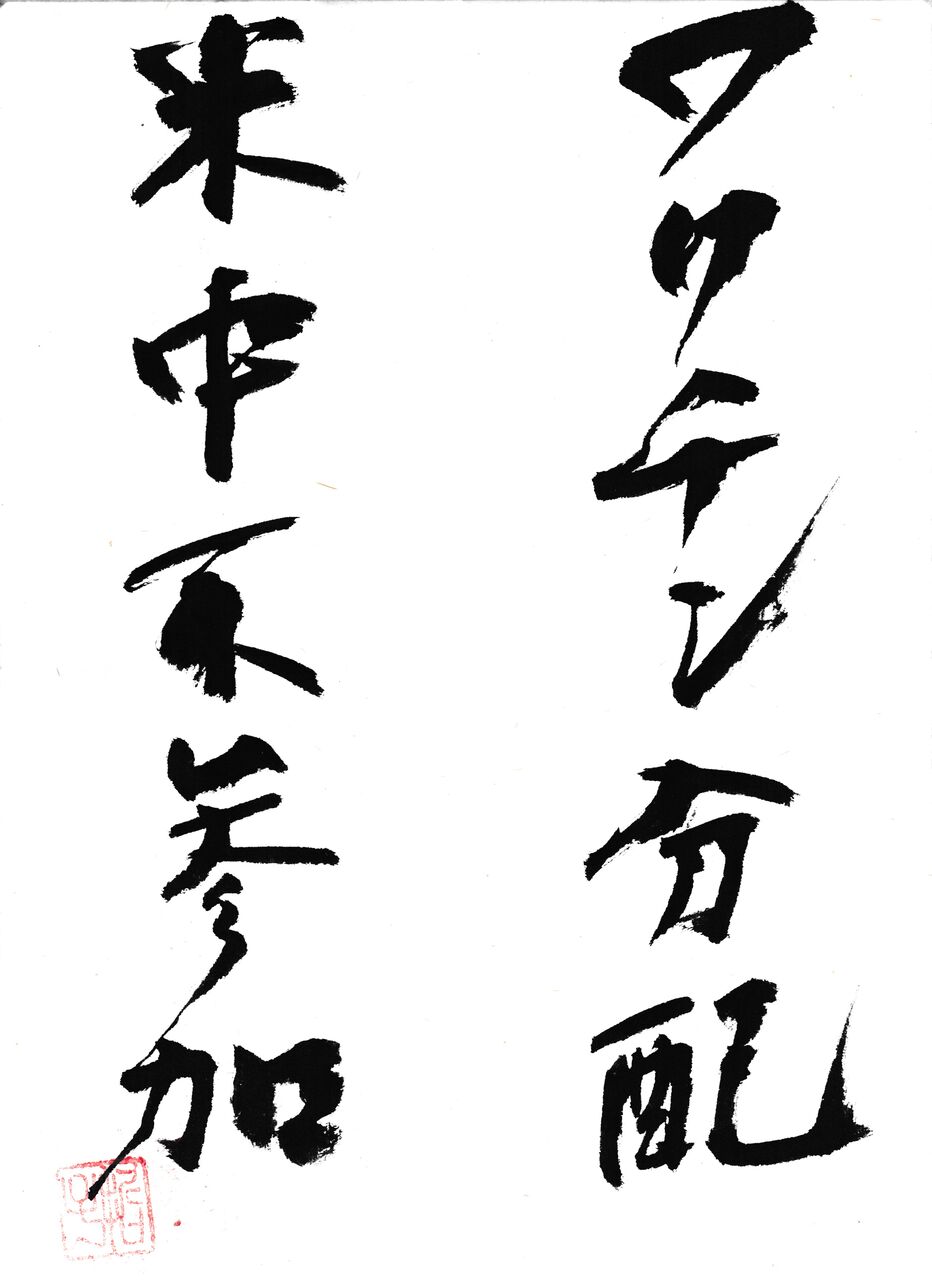 ワクチン分配
米中不参加